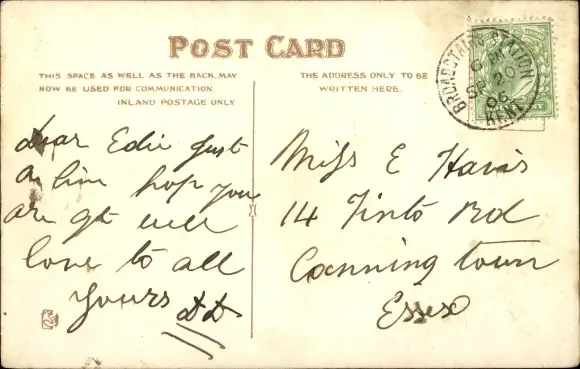 POST CARD
THIS SPACE AS WELL AS THE BACK, MAY
NOW BE USED FOR COMMUNICATION.
INLAND POSTAGE ONLY.
THE ADDRESS ONLY TO BE
WRITTEN HERE.
BROADSTAIRS STATION
6 PM
SP 20
06
KENT
Dear Edie Just
a line hop you
are gt well
love to all
yours DD
Miss E Havis
14 Tinto Rd
Canning town
Essex